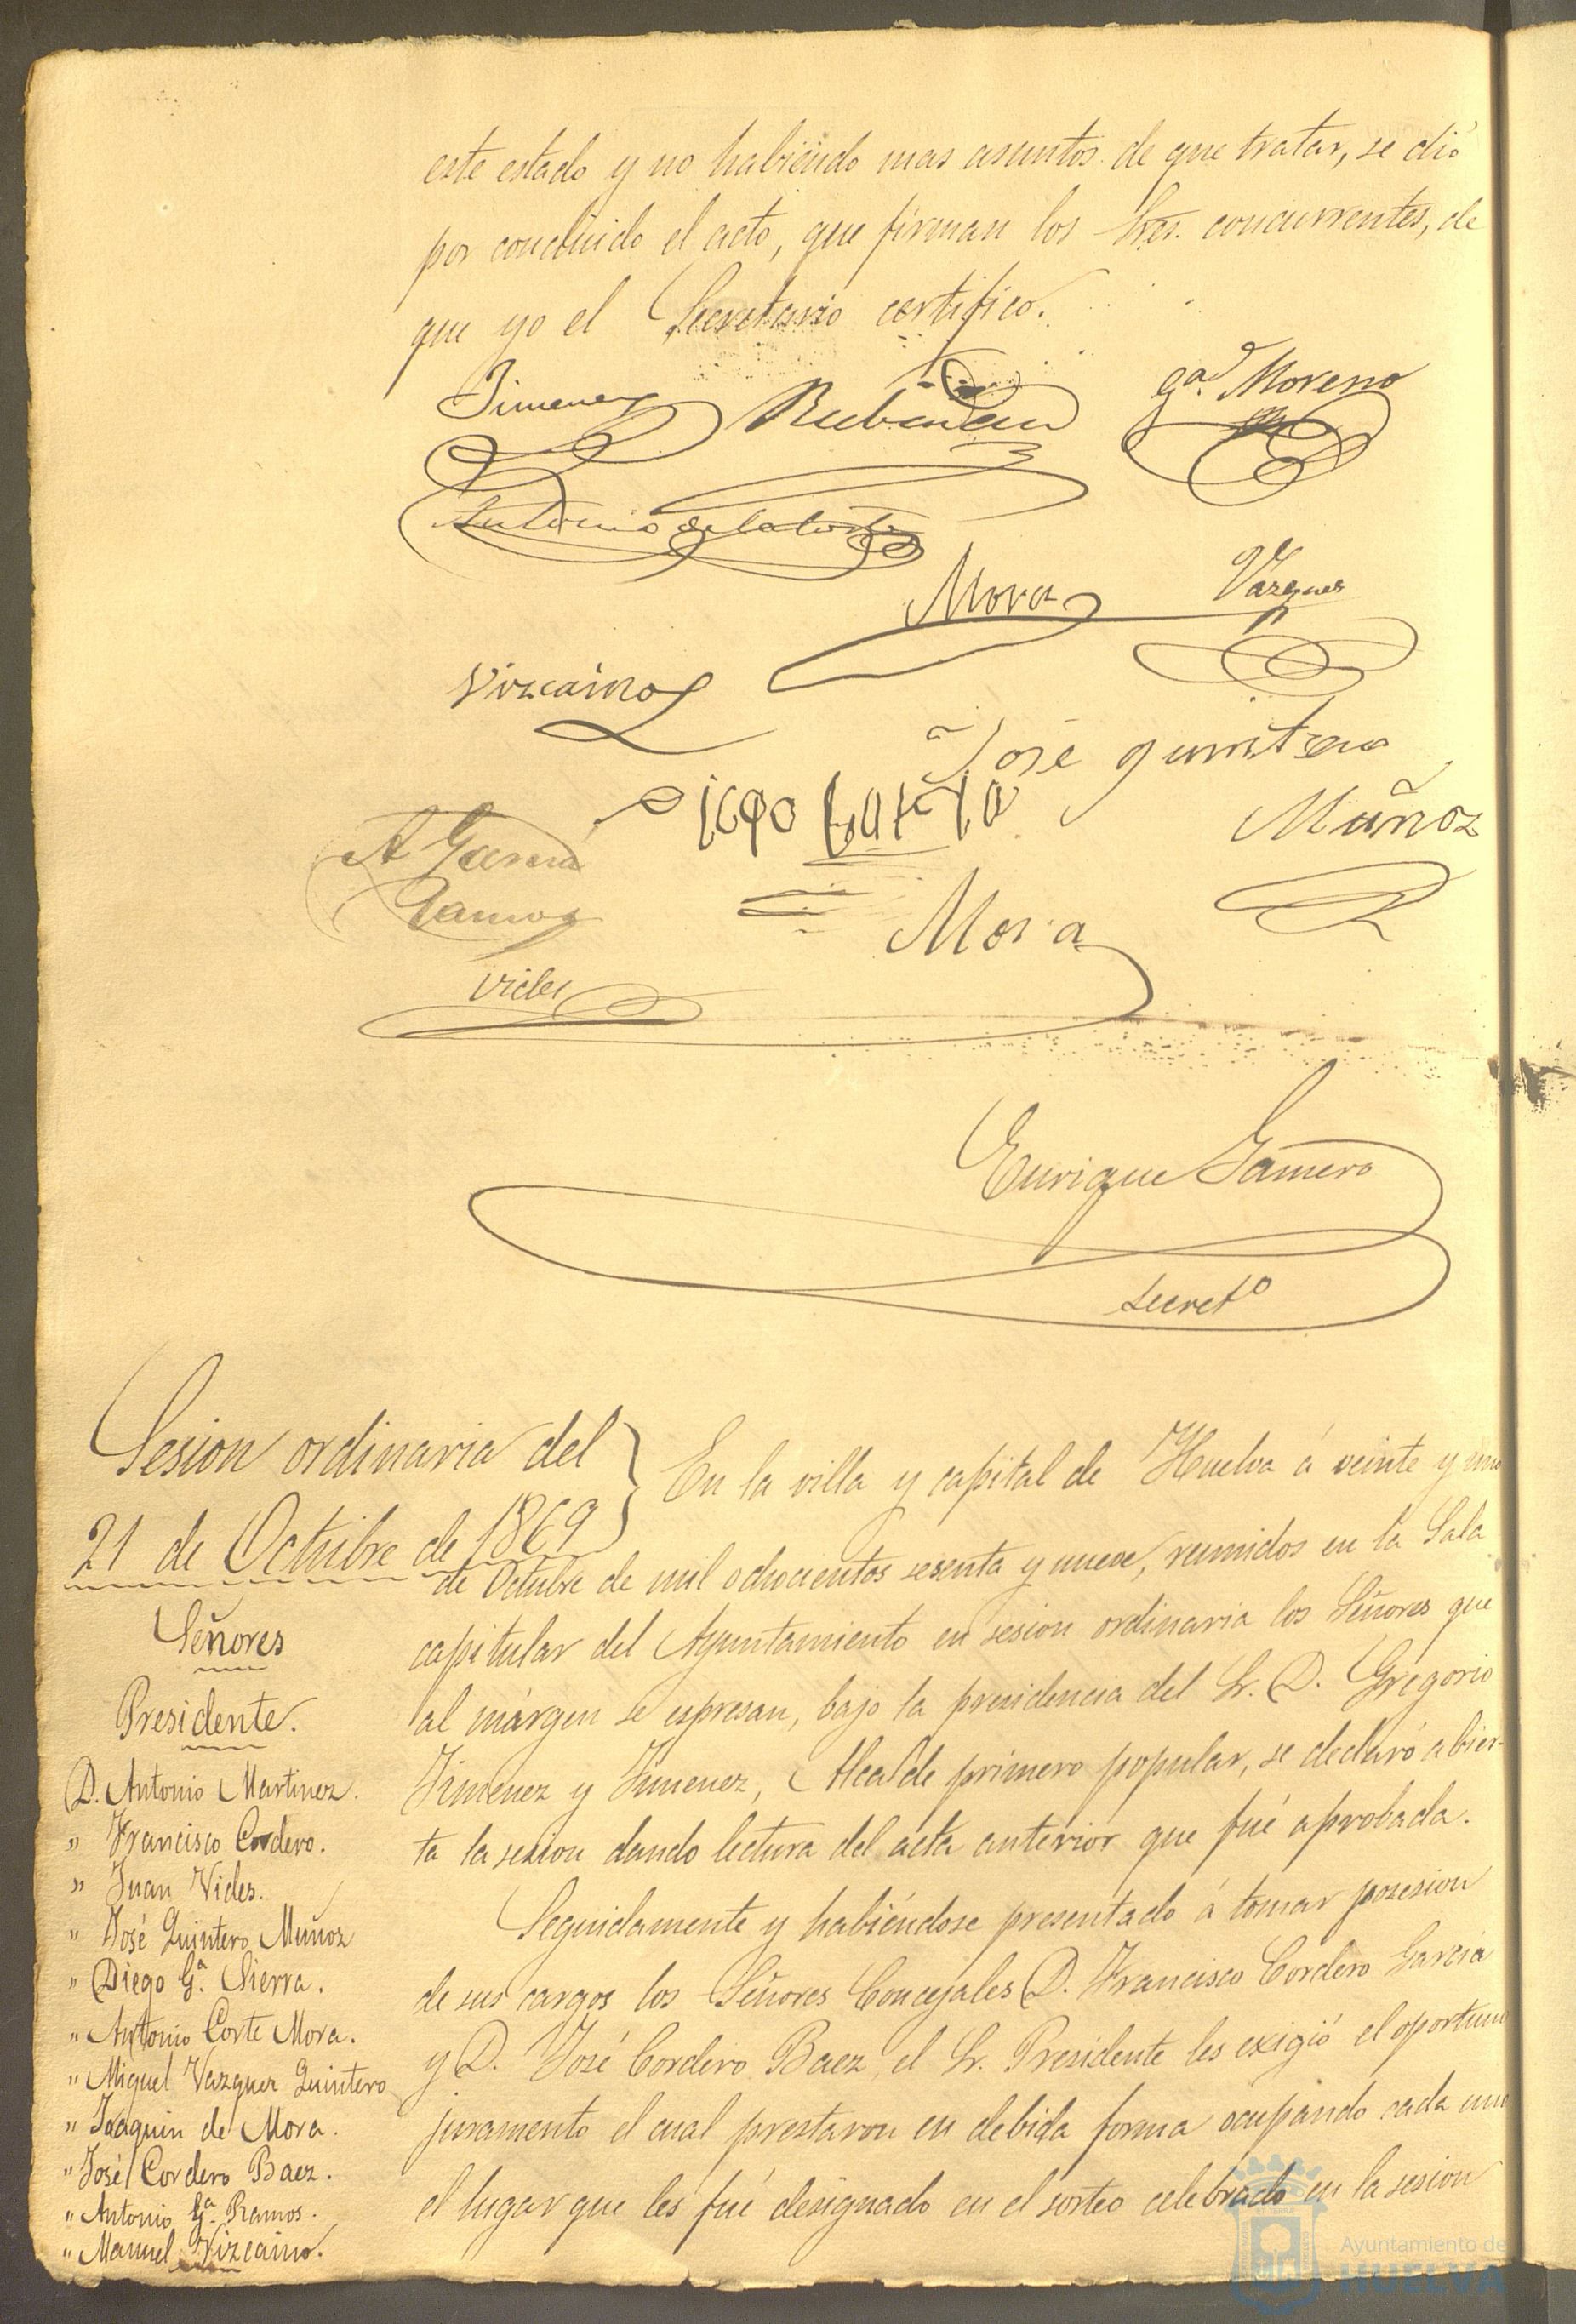 este estado y no habiendo mas asuntos de que tratar, se dió
por concluido el acto, que firman los Sres. concurrentes, de
que yo el Secretario certifico.
Jimenez
Gª. Moreno
Antonio de la Corte
Mora
Vazquez
Vizcaino
José Quintero
Diego Garcia
Muñoz
A Garcia
Ramos
Mora
Vides
Enrique Gamero
Secretº
Sesion ordinaria del
21 de Octubre de 1869
Señores
Presidente.
D. Antonio Martinez.
" Francisco Cordero.
" Juan Vides.
" José Quintero Muñoz
" Diego Gª. Sierra.
" Antonio Corte Mora.
" Miguel Vazquez Quintero
" Joaquin de Mora.
" José Cordero Baez.
" Antonio Gª. Ramos.
" Manuel Vizcaino.
En la villa y capital de Huelva á veinte y uno
de Octubre de mil ochocientos sesenta y nueve, reunidos en la Sala
capitular del Ayuntamiento en sesion ordinaria los Señores que
al márgen se espresan, bajo la presidencia del Sr. D. Gregorio
Jimenez y Jimenez, Alcalde primero popular, se declaró abier-
ta la sesion dando lectura del acta anterior que fué aprobada.
Seguidamente y habiéndose presentado á tomar posesion
de sus cargos los Señores Concejales D. Francisco Cordero Garcia
y D. José Cordero Baez, el Sr. Presidente les exigió el oportuno
juramento el cual prestaron en debida forma ocupando cada uno
el lugar que les fué designado en el sorteo celebrado en la sesion
Ayuntamiento de
HUELVA